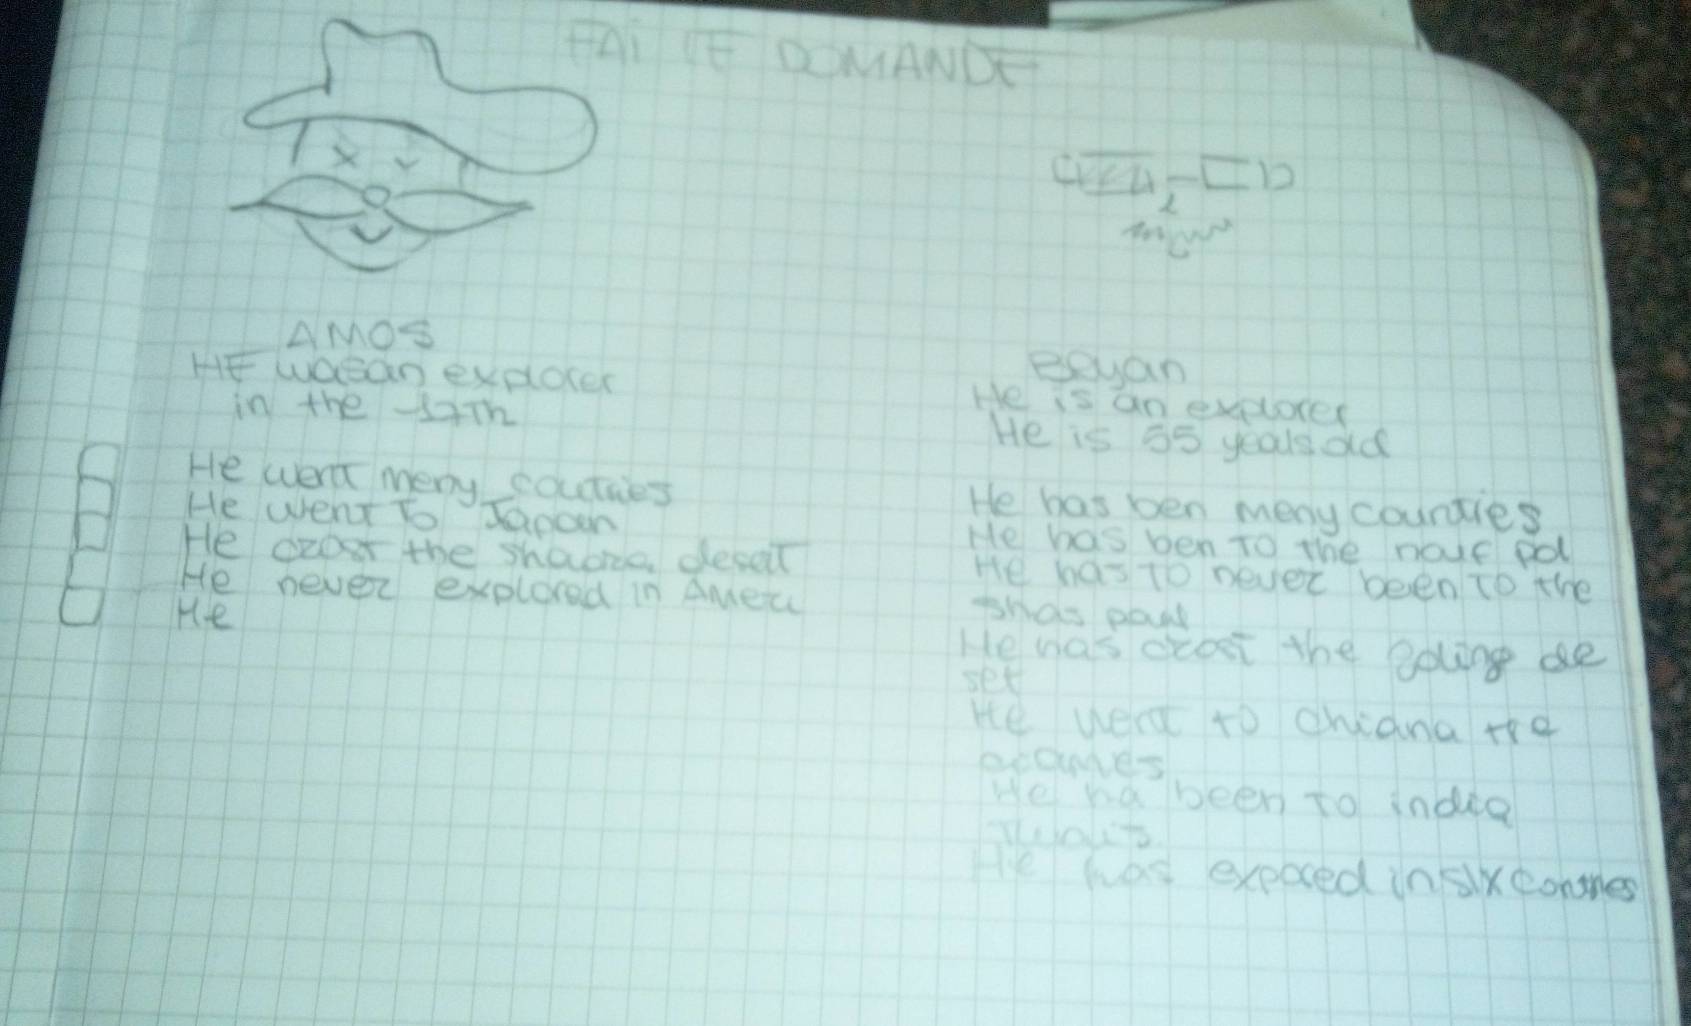 FAI LE DOMANDE
AMOS
HE wasan explorer
in the 17Th
He went meny coutries
He went To Japan
He crost the shaora desert
He never explored in Ameri
He
Bryan
He is an explorer
He is 55 years old
He has ben meny countries
He has ben TO the
He has TO never been TO the
He has crost the de
set
He went to chiana
He ha been to india
He has expored in six